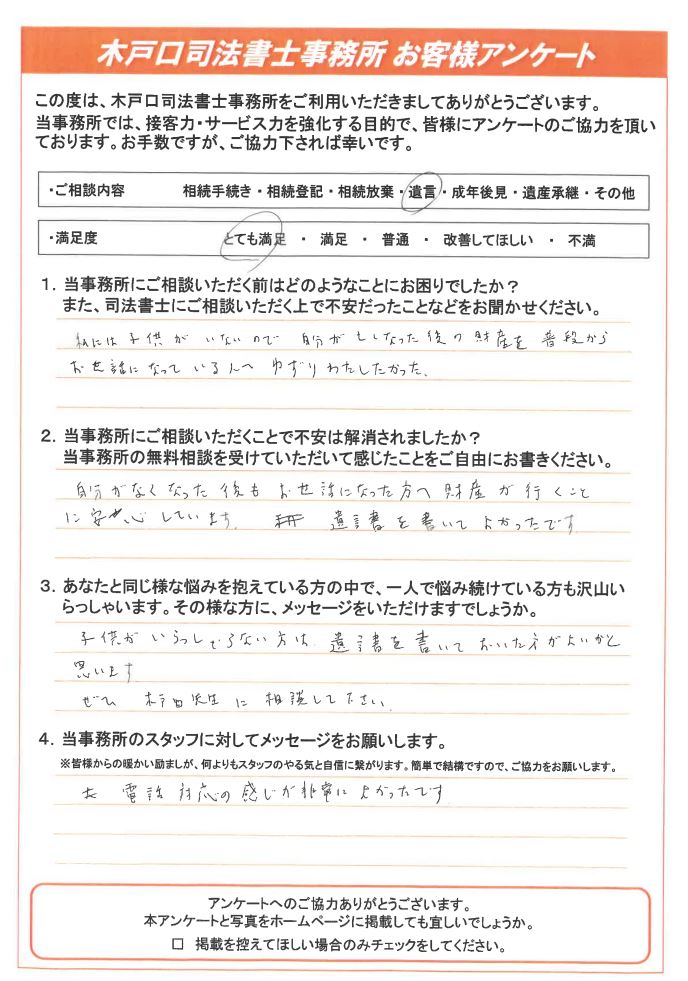 木戸口司法書士事務所 お客様アンケート
この度は、木戸口司法書士事務所をご利用いただきましてありがとうございます。
当事務所では、接客力・サービス力を強化する目的で、皆様にアンケートのご協力を頂い
ております。お手数ですが、ご協力下されば幸いです。
・ご相談内容 相続手続き・相続登記・相続放棄・遺言・成年後見・遺産承継・その他
・満足度 とても満足 ・ 満足 ・ 普通 ・ 改善してほしい ・ 不満
1．当事務所にご相談いただく前はどのようなことにお困りでしたか？
また、司法書士にご相談いただく上で不安だったことなどをお聞かせください。
私には子供がいないので自分がなくなった後の財産を普段から
お世話になっている人へゆずりわたしたかった、
2．当事務所にご相談いただくことで不安は解消されましたか？
当事務所の無料相談を受けていただいて感じたことをご自由にお書きください。
自分がなくなった後もお世話になった方へ財産が行くこと
に安心しています。 遺言書を書いてよかったです
3．あなたと同じ様な悩みを抱えている方の中で、一人で悩み続けている方も沢山い
らっしゃいます。その様な方に、メッセージをいただけますでしょうか。
子供がいらっしゃらない方は、遺言書を書いておいた方がよいかと
思います
ぜひ 木戸口先生に相談して下さい、
4．当事務所のスタッフに対してメッセージをお願いします。
※皆様からの暖かい励ましが、何よりもスタッフのやる気と自信に繋がります。簡単で結構ですので、ご協力をお願いします。
電話対応の感じが非常によかったです
アンケートへのご協力ありがとうございます。
本アンケートと写真をホームページに掲載しても宜しいでしょうか。
□ 掲載を控えてほしい場合のみチェックをしてください。